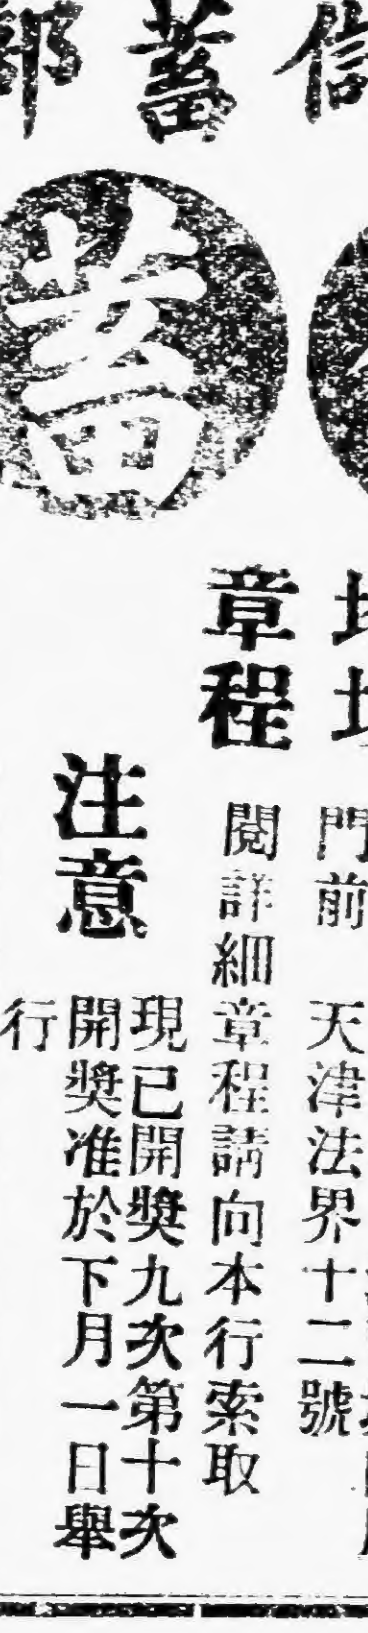 信蓄部
蓄
門前
天津法界十二號
章程
閱詳細章程請向本行索取
注意
現已開獎九次第十次
開獎准於下月一日舉
行